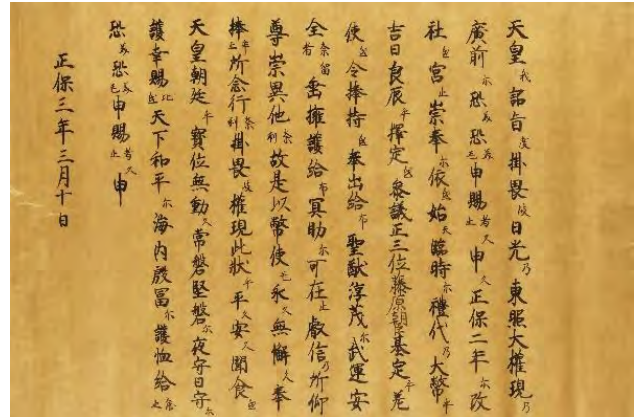 天皇我詔旨度掛畏岐日光乃東照大權現乃
廣前尓恐美恐美毛申賜者久止申久正保二年尓改
社天宮止崇奉尓依天始天臨時尓禮代乃大幣乎
吉日良辰乎擇定天參議正三位藤原朝臣基定乎差
使天令捧持天奉出給布聖猷淳茂尓武運安
全奈留者擁護給布冥助尓可在止叡信乃所仰
尊崇異他奈利故是以幣使毛永久無懈久奉
捧牟止所念行奈利掛畏岐權現此狀乎平久安久聞食天
天皇朝廷乎寶位無動久常磐堅磐尓夜守日守尓
護幸賜比天天下和平尓海內殷富尓護恤給倍止
恐美恐美毛申賜者久止申
正保三年三月十日